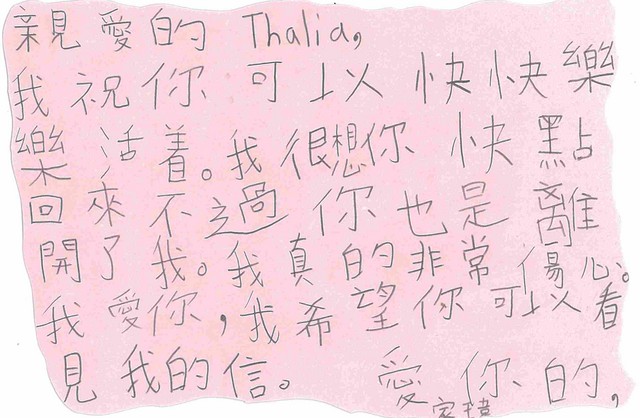 親愛的 Thalia,
我祝你可以快快樂
樂活着。我很想你快點
回來不過你也是離
開了我。我真的非常傷心。
我愛你,我希望你可以看
見我的信。愛你的,
家瑋